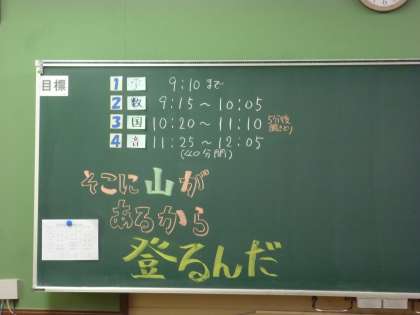 目標
1 9:10まで
2 数 9:15～10:05
3 国 10:20～11:10
4 音 11:25～12:05
(40分間)
そこに山が
あるから
登るんだ